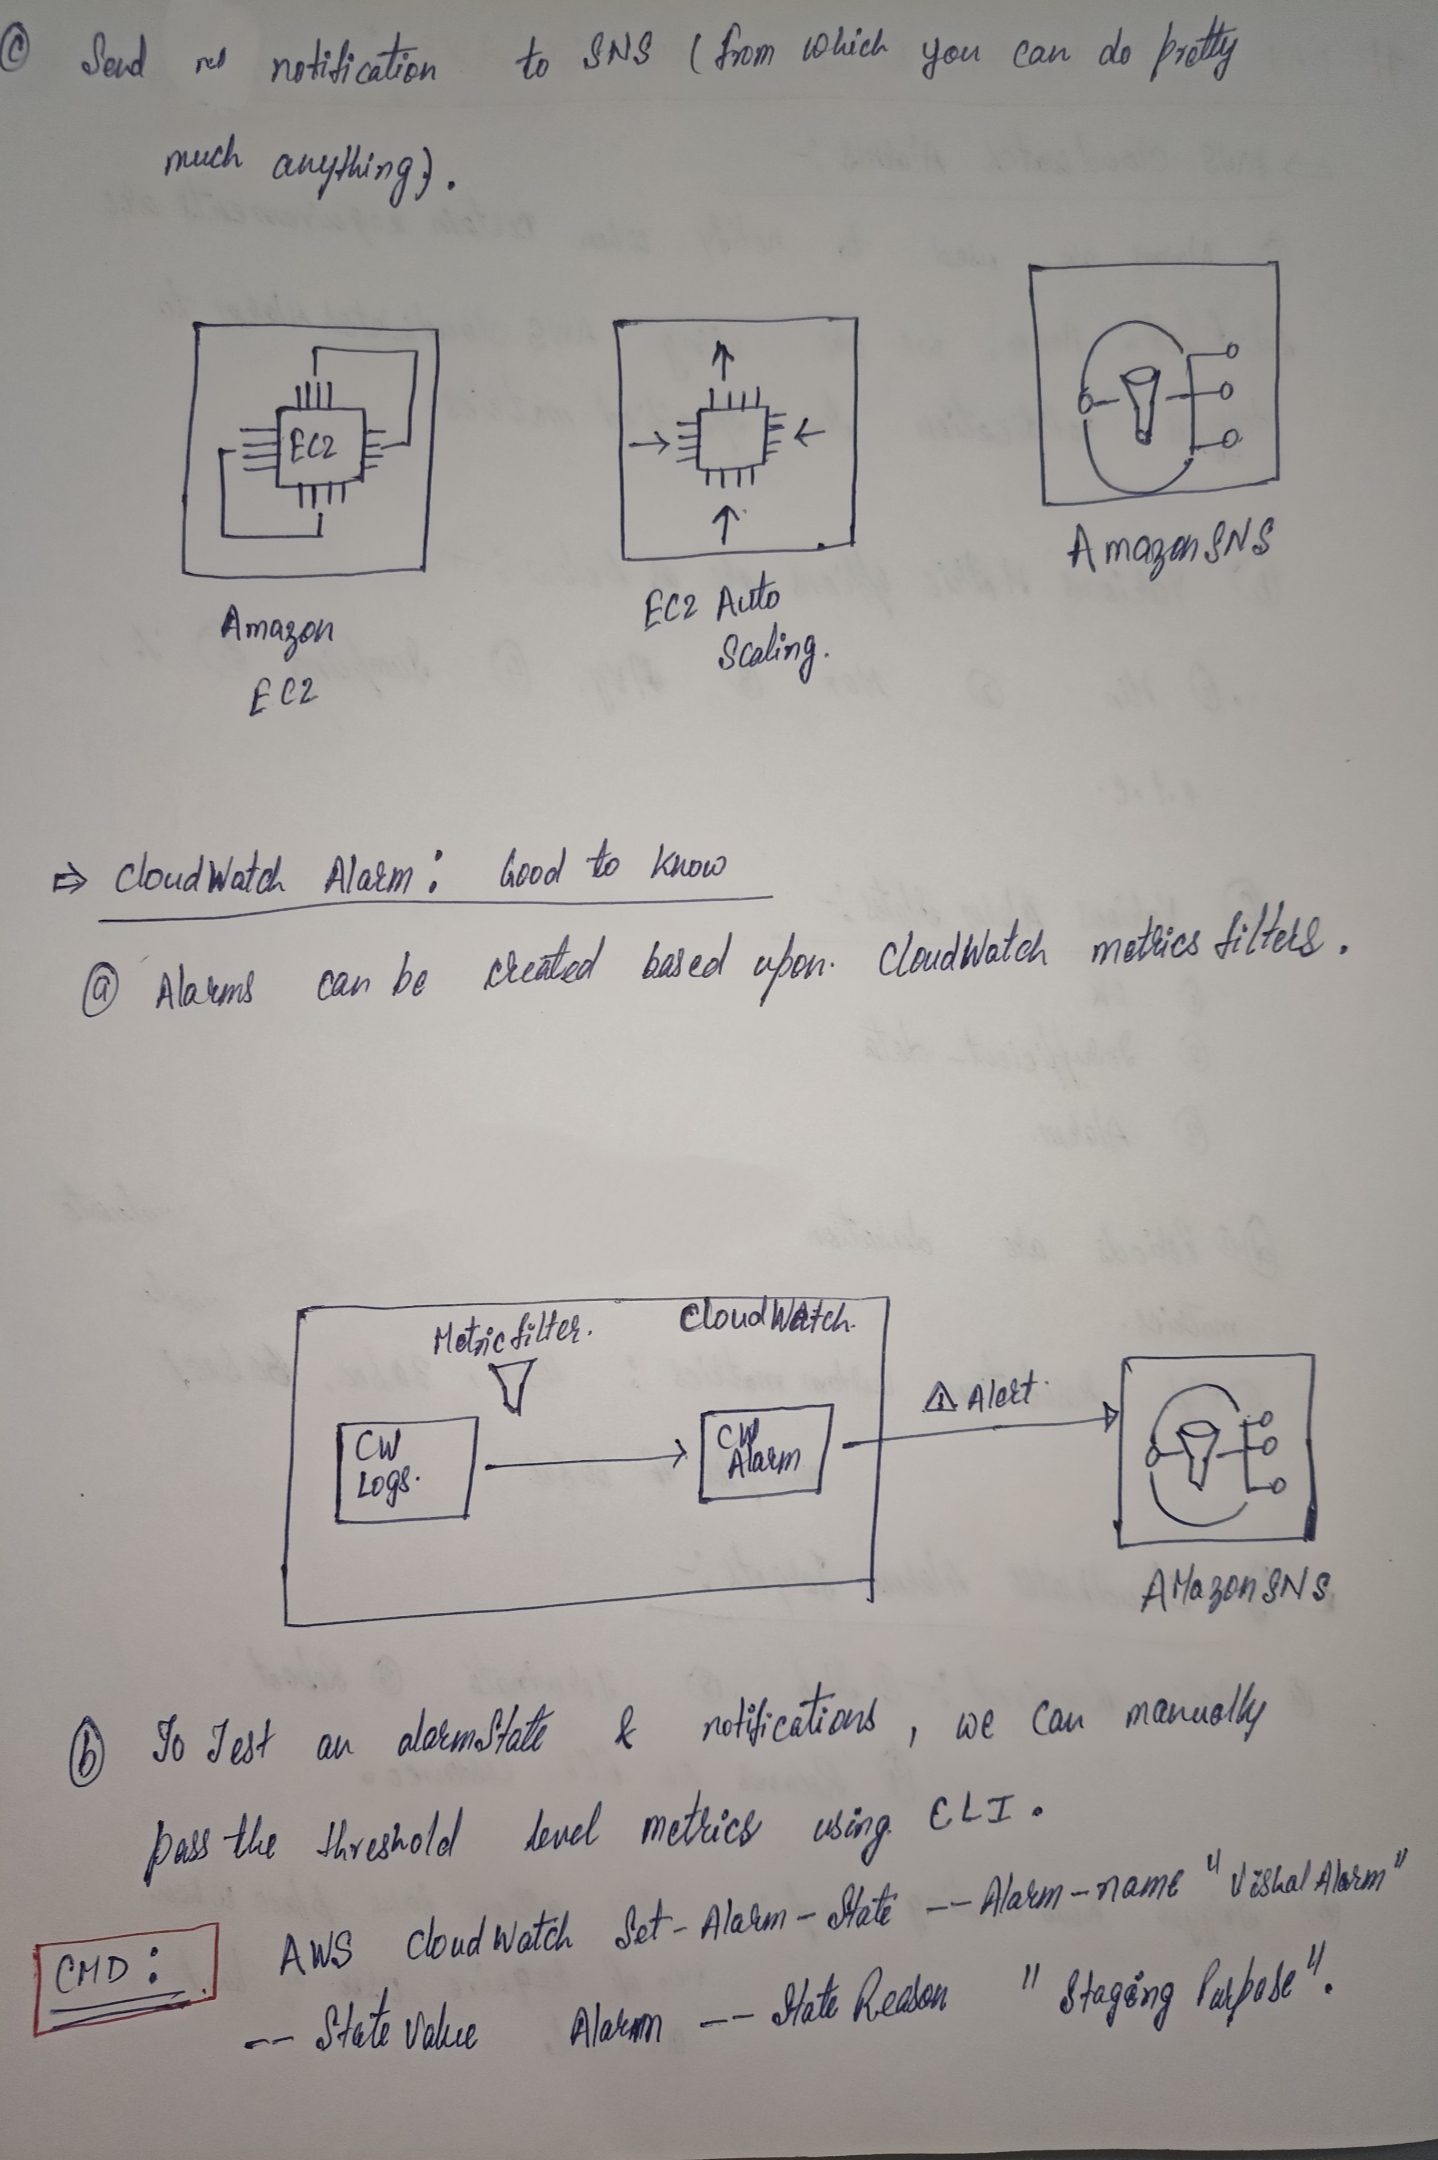 © Send notification to SNS (from which you can do pretty
much anything).
EC2
Amazon
EC2
EC2 Auto
Scaling.
Amazon SNS
⇒ CloudWatch Alarm: Good to know
ⓐ Alarms can be created based upon. CloudWatch metrics filters.
Metric filter. CloudWatch.
CW
Logs.
CW
Alarm
⚠ Alert.
AMazon SNS
ⓑ To Test an alarm State & notifications, we can manually
pass the threshold level metrics using CLI.
CMD: AWS CloudWatch Set-Alarm-State -- Alarm-name "Vishal Alarm"
-- State Value Alarm -- State Reason "Staging Purpose".